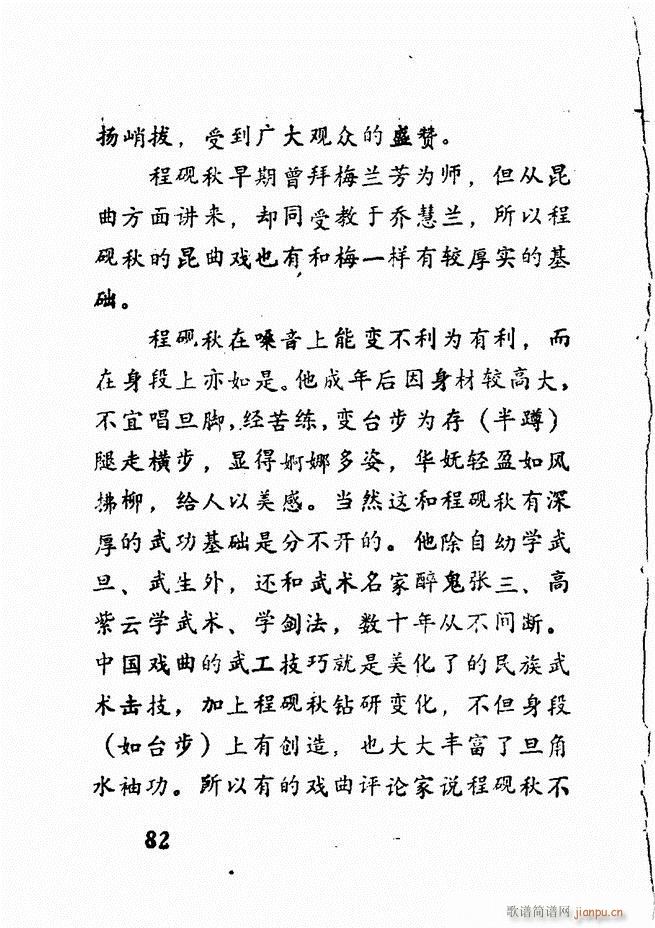 扬峭拔，受到广大观众的盛赞。
程砚秋早期曾拜梅兰芳为师，但从昆
曲方面讲来，却同受教于乔慧兰，所以程
砚秋的昆曲戏也有和梅一样有较厚实的基
础。
程砚秋在嗓音上能变不利为有利，而
在身段上亦如是。他成年后因身材较高大，
不宜唱旦脚，经苦练，变台步为存（半蹲）
腿走横步，显得婀娜多姿，华妩轻盈如风
拂柳，给人以美感。当然这和程砚秋有深
厚的武功基础是分不开的。他除自幼学武
旦、武生外，还和武术名家醉鬼张三、高
紫云学武术、学剑法，数十年从不间断。
中国戏曲的武工技巧就是美化了的民族武
术击技，加上程砚秋钻研变化，不但身段
（如台步）上有创造，也大大丰富了旦角
水袖功。所以有的戏曲评论家说程砚秋不
82
歌谱简谱网 jianpu.cn